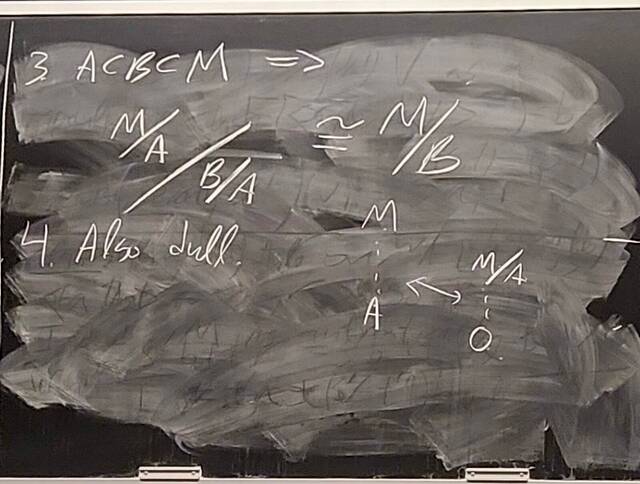 3. A⊂B⊂M ⇒
M/A / B/A ≅ M/B
4. Also dull.
M
M/A
A
O